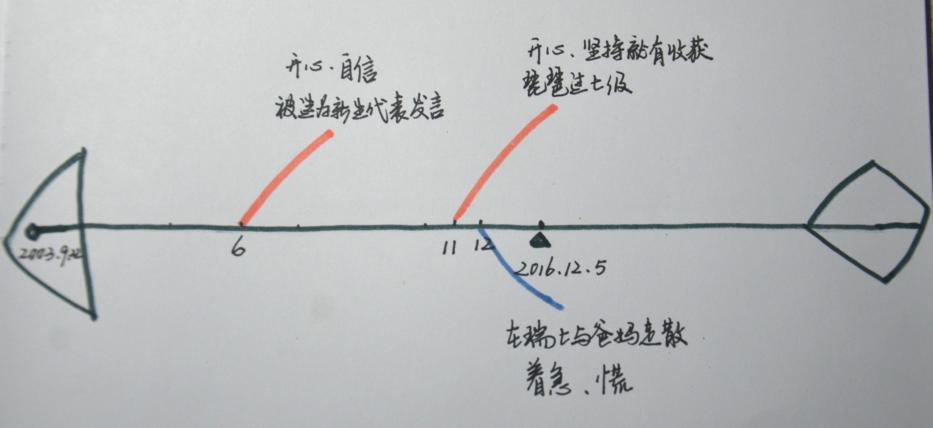 开心、自信
被选为新生代表发言
开心、坚持就有收获
琵琶过七级
2003.9.22
6
11
12
2016.12.5
在瑞士与爸妈走散
着急、慌